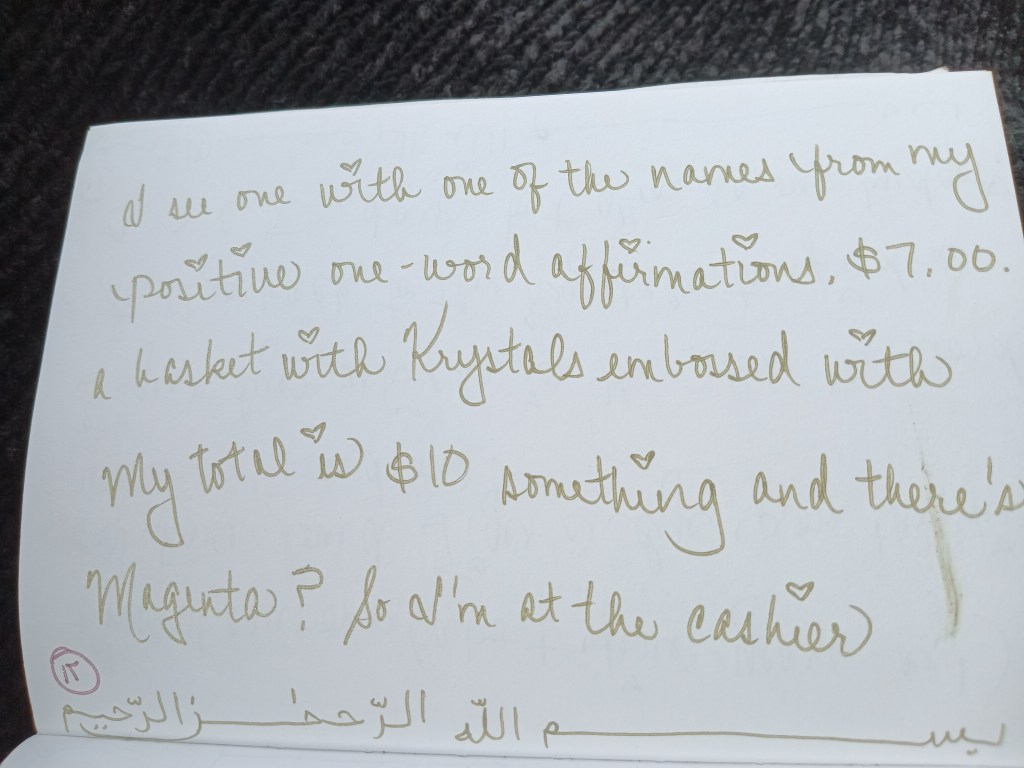 I see one with one of the names from my
positive one-word affirmations. $7.00.
a basket with Krystals embossed with
My total is $10 something and there's
Magenta? So I'm at the cashier
١٢
بسم اللّه الرّحمٰن الرّحيم